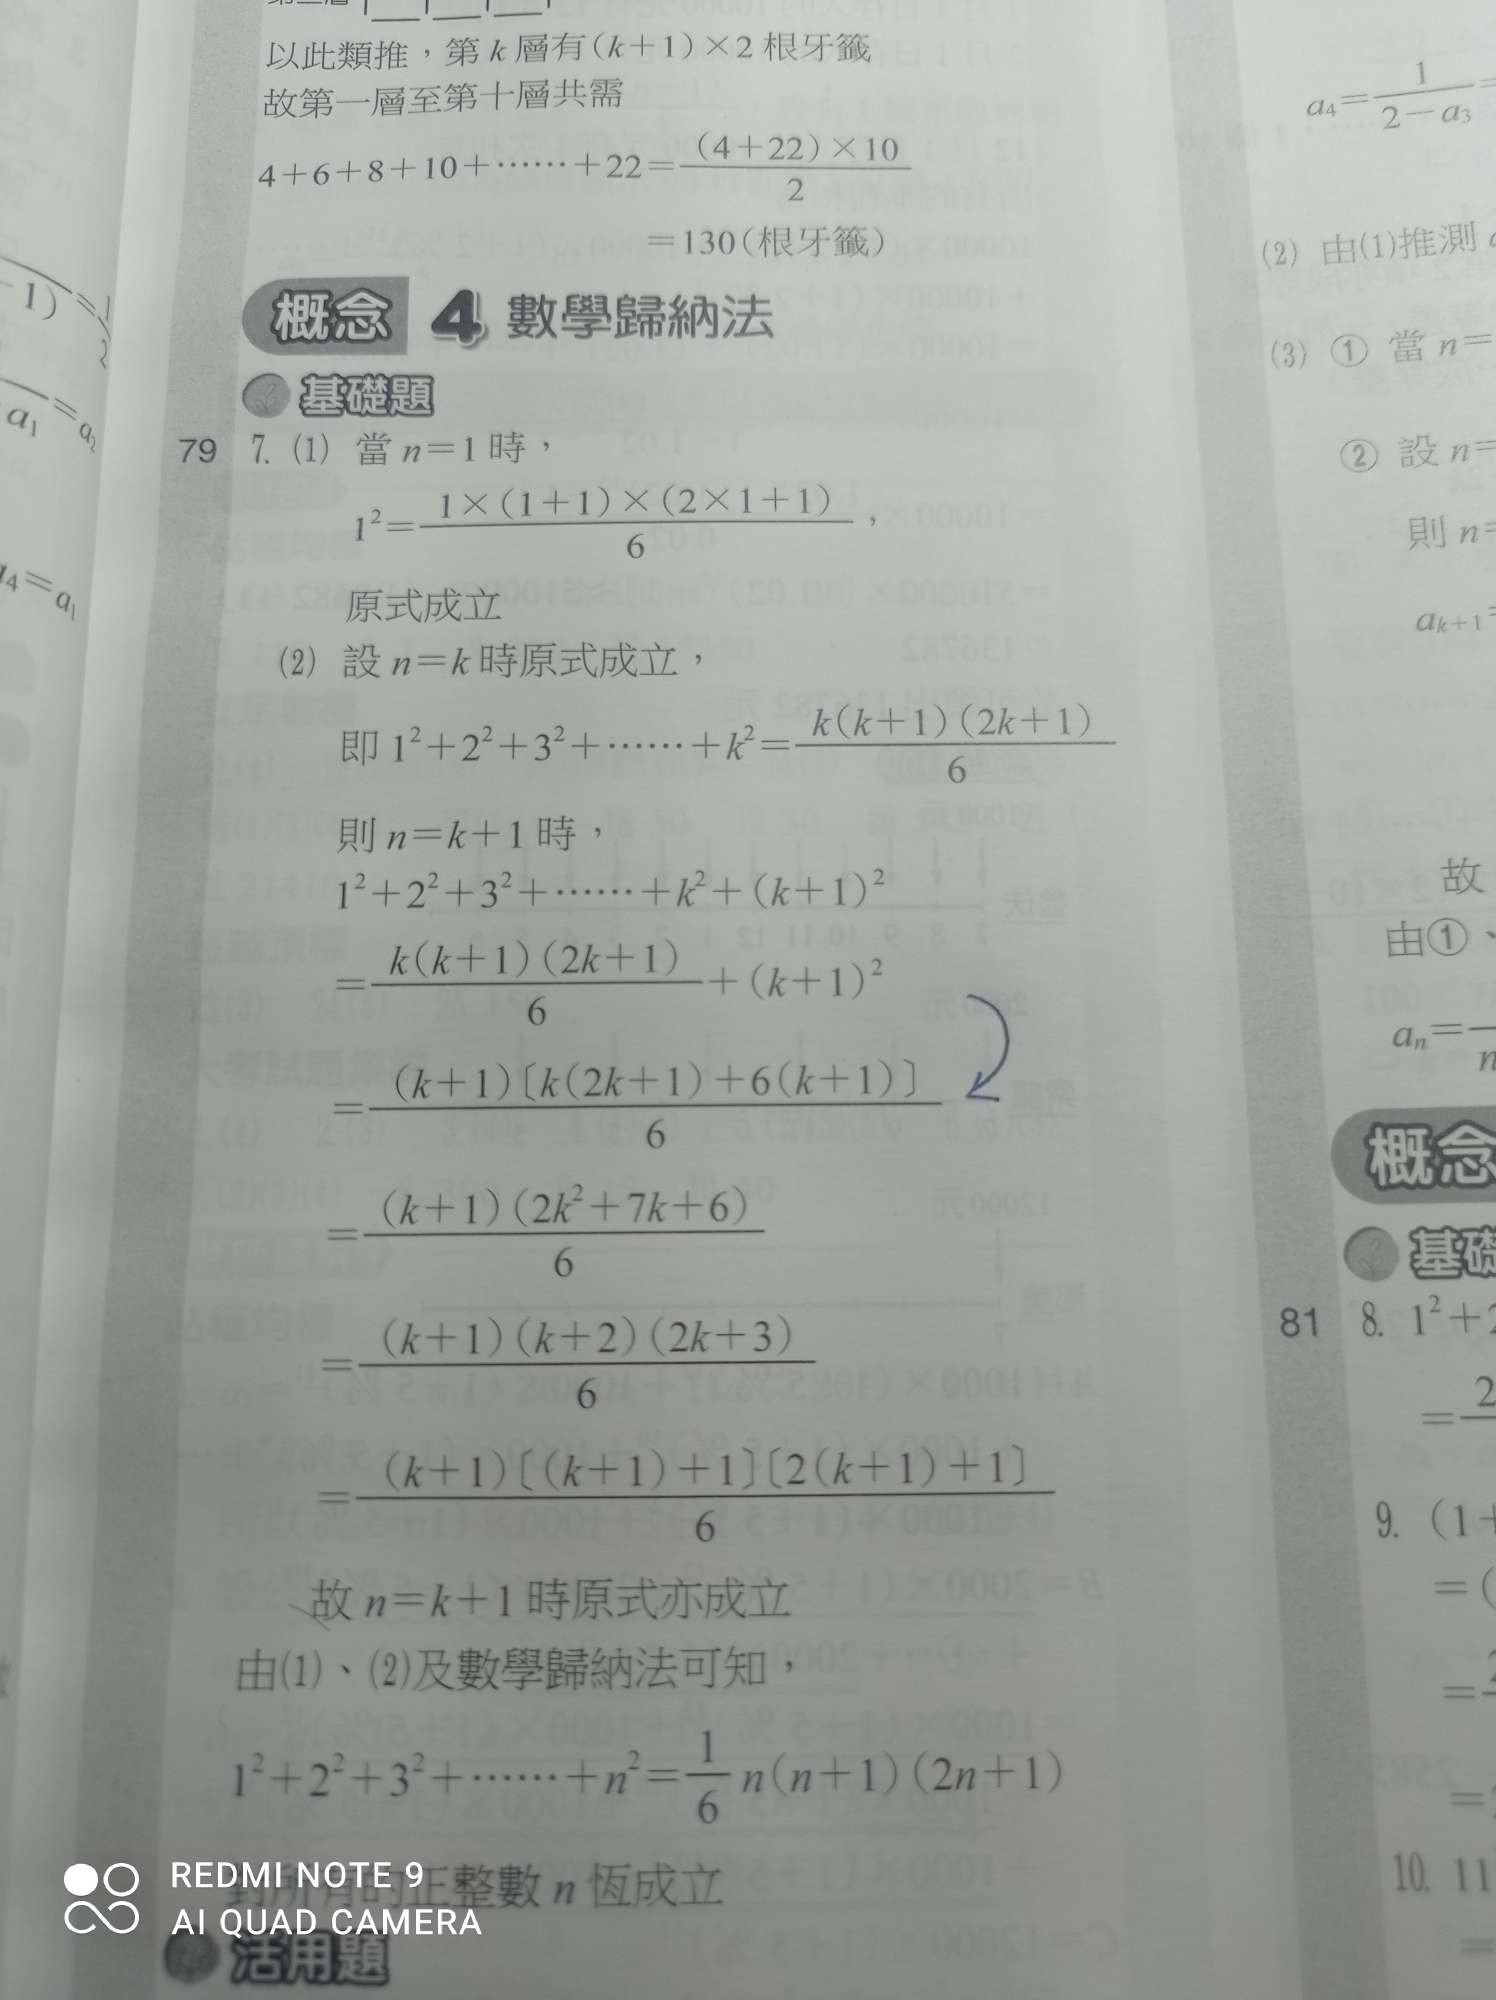 以此類推，第 k 層有(k+1)×2 根牙籤
故第一層至第十層共需
4+6+8+10+……+22=\frac{(4+22)×10}{2}
=130(根牙籤)
概念 4 數學歸納法
基礎題
79 7. (1) 當 n=1 時，
1²=\frac{1×(1+1)×(2×1+1)}{6}，
原式成立
(2) 設 n=k 時原式成立，
即 1²+2²+3²+……+k²=\frac{k(k+1)(2k+1)}{6}
則 n=k+1 時，
1²+2²+3²+……+k²+(k+1)²
=\frac{k(k+1)(2k+1)}{6}+(k+1)²
=\frac{(k+1)〔k(2k+1)+6(k+1)〕}{6}
=\frac{(k+1)(2k²+7k+6)}{6}
=\frac{(k+1)(k+2)(2k+3)}{6}
=\frac{(k+1)〔(k+1)+1〕〔2(k+1)+1〕}{6}
故 n=k+1 時原式亦成立
由(1)、(2)及數學歸納法可知，
1²+2²+3²+……+n²=\frac{1}{6}n(n+1)(2n+1)
對所有的正整數 n 恆成立
活用題
a₄=\frac{1}{2-a₃}=
(2) 由(1)推測
(3) ① 當 n=
② 設 n=
則 n=
aₖ₊₁=
故
由①、
aₙ=
概念
基礎
81 8. 1²+2
=
9. (1+
=(
=
=
10. 11
=
REDMI NOTE 9
AI QUAD CAMERA